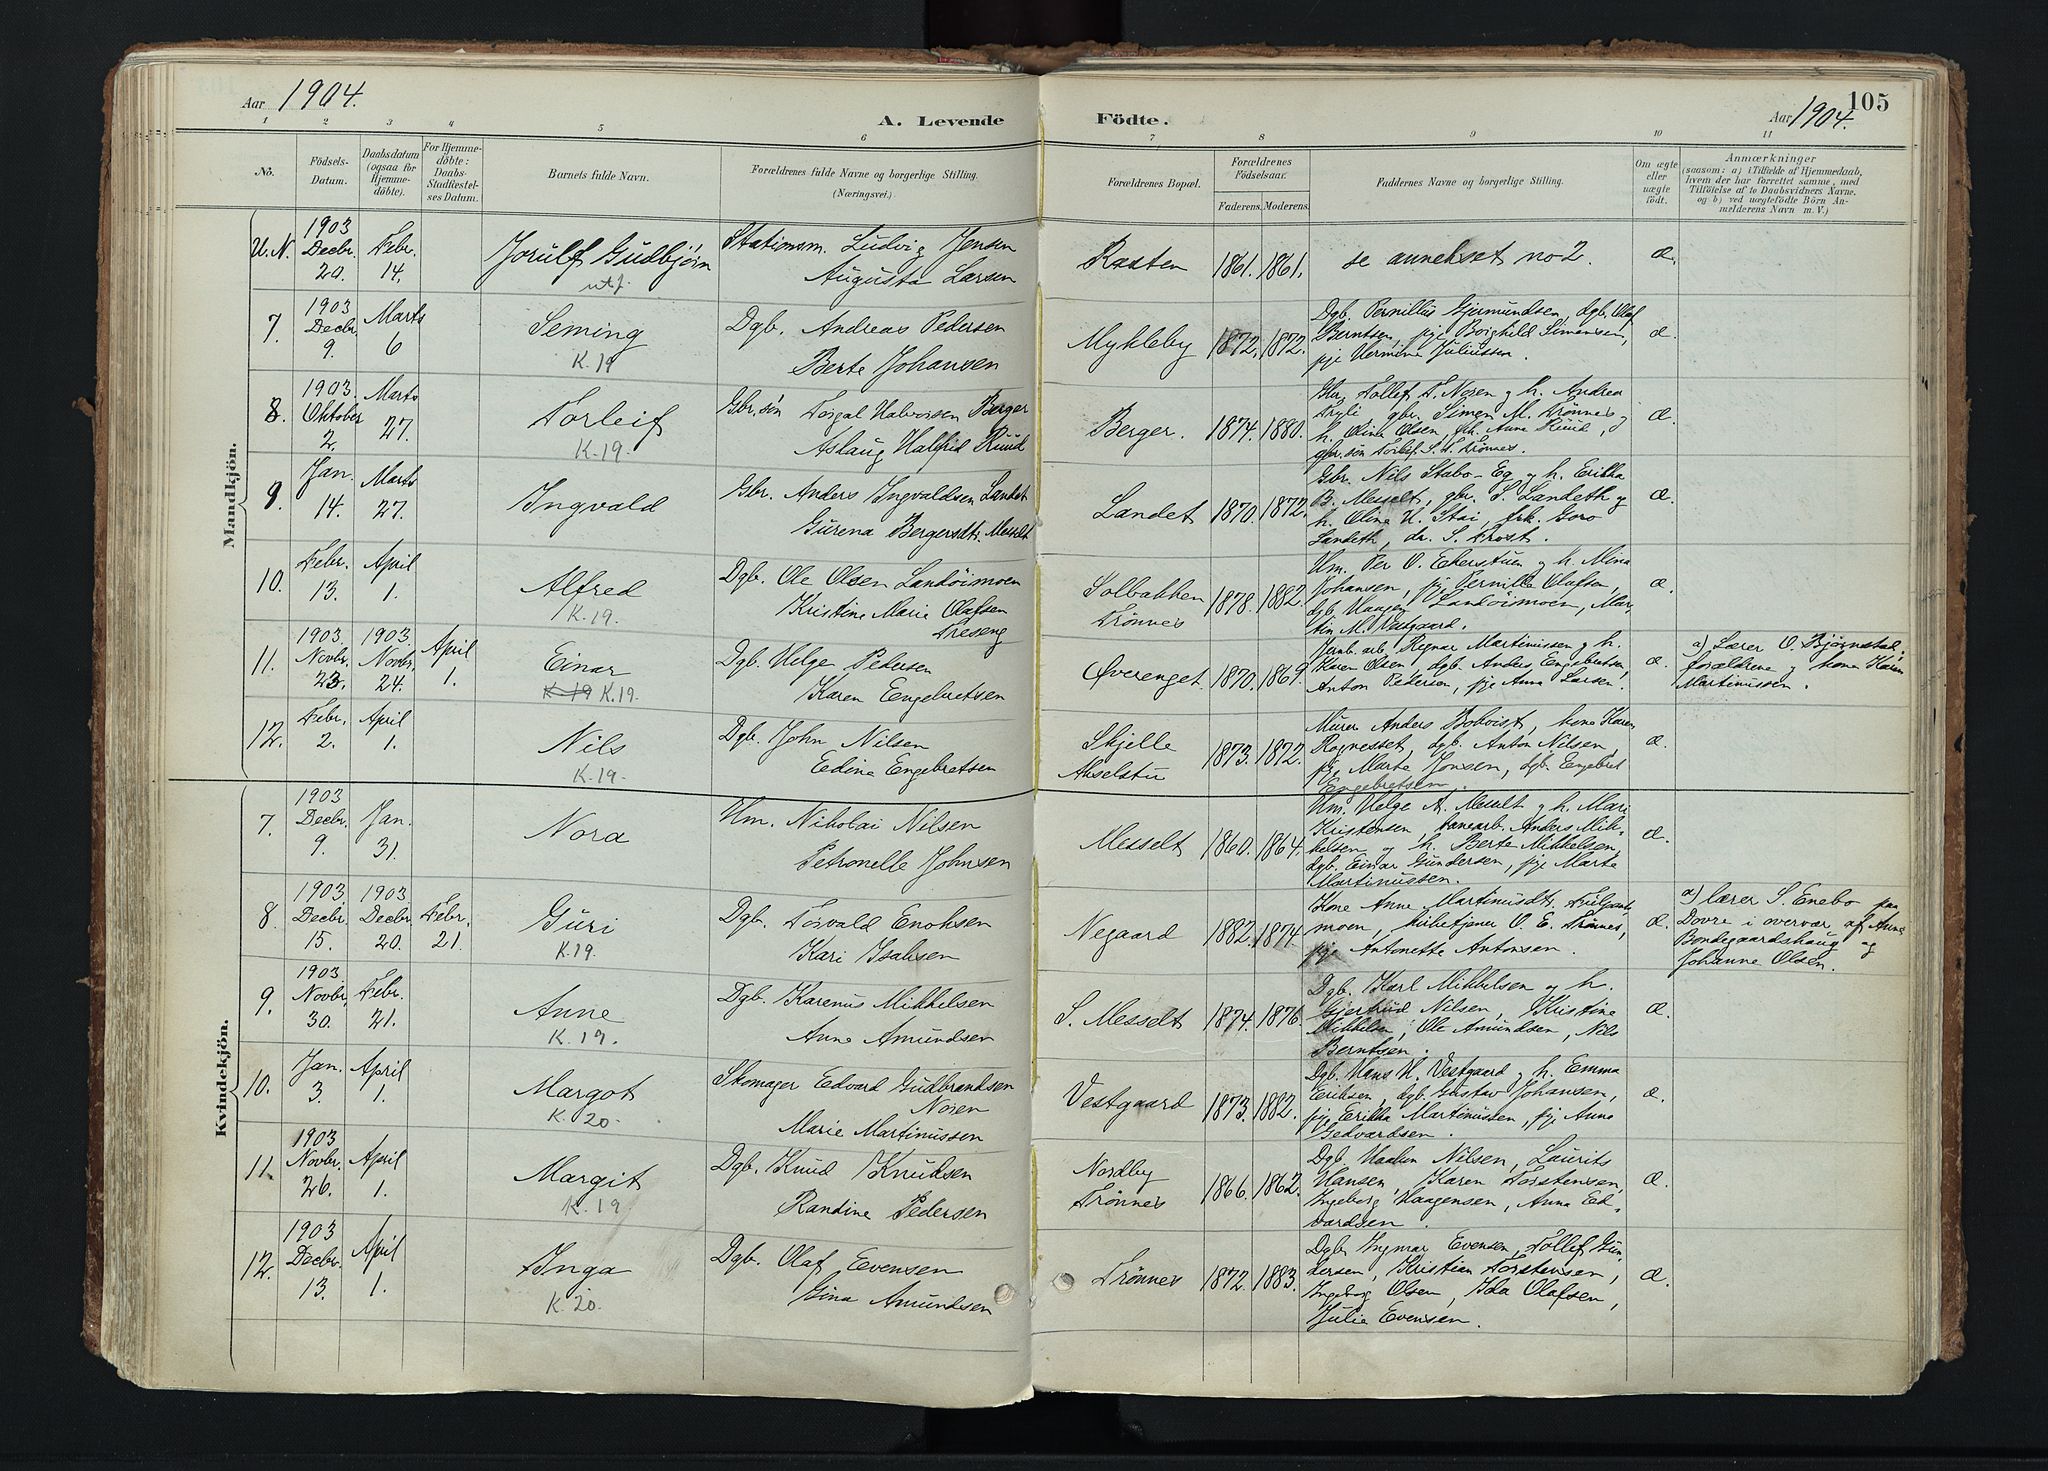 Aar 1904.
A. Levende Födte.
Aar 1904.
105
1 2 3 4 5 6 7 8 9 10 11
No.
Födsels-Datum.
Daabsdatum (ogsaa for Hjemmedöbte).
For Hjemmedöbte: Daabs-Stadfæstelses Datum.
Barnets fulde Navn.
Forældrenes fulde Navne og borgerlige Stilling. (Næringsvei.)
Forældrenes Bopæl.
Forældrenes Födselsaar.
Faderens. Moderens.
Faddernes Navne og borgerlige Stilling.
Om ægte eller uægte födt.
Anmærkninger
(saasom: a) i Tilfælde af Hjemmedaab, hvem der har forrettet samme, med Tilföielse af to Daabsvidners Navne. og b) ved uægtefödte Börn Anmelderens Navn m. V.)
Mandkjön.
U.N. 1903 Decbr. 20. Febr. 14. Jorulf Gudbjörn Stationsm. Ludvig Jensen
Augusta Larsen
Rasten 1861. 1861. se annekset no 2. æ.
7. 1903 Decbr. 9. Marts 6 Seming K. 19 Dgb. Andreas Pedersen
Berte Johansen
Mykleby 1872. 1872. Dgb. Pernillus Gjermundsen, dgb. Olaf
Berntsen, pje Borghild Simensen,
pje Hermine Juliussen. æ.
8. 1903. Oktober 2. Marts 27. Torleif K. 19. Gbr. sön Torgal Halvorsen Berger
Aslaug Halfrid Ruud
Berger. 1874. 1880. Gbr. Tollef T. Noren og h. Andrea
Tryli, gbr. Simen M. Trönnes og
h. Oline Olsen, frk. Anne Ruud,
gbr. sön Torlef S. Trönnes. æ.
9. Jan. 14. Marts 27. Ingvald Gbr. Anders Ingvaldsen Landet
Gurena Bergersdtr. Messelt
Landet 1870. 1872. Gbr. Nils Stabo-Eg og h. Erikka
B. Messelt, gbr. S. Landeth og
h. Oline H. Stai, frk. Goro
Landeth, dr. S. Trost. æ.
10. Febr. 13. April 1. Alfred K. 19. Dgb. Ole Olsen Landöimoen
Kristine Marie Olafsen
Treseng
Solbakken Trönnes 1878. 1882. Hm. Per O. Ekerstuen og h. Mina
Johansen, pje Pernille Olafsen,
dgb. Haagen Landöismoen, Mar-
tin M. Vestgaard. æ.
11. 1903. Novbr. 23. 1903 Novbr. 24. April 1. Einar K. 19 K. 19. Dgb. Helge Pedersen
Karen Engebretsen
Øverenget 1870. 1869. Jernb. arb. Regnar Martinussen og h.
Karen Olsen, dgb. Anders Engebretsen,
Anton Pedersen, pje Anna Larsen. æ.
a) Lærer O. Bjørnstad,
forældrene og kone Karen
Martinussen.
12. Febr. 2. April 1. Nils K. 19. Dgb. John Nilsen
Edine Engebretsen
Skjelle Akselstu 1873. 1872. Murer Anders Bokvist, kone Karen
Rognesset, dgb. Anton Nilsen,
pje Marte Jonsen, dgb. Engebret
Engebretsen. æ.
Kvindekjön.
7. 1903 Decbr. 9. Jan. 31. Nora Hm. Nikolai Nilsen
Petronelle Johnsen
Messelt 1860. 1864. Hm. Helge A. Messelt og h. Mari
Kristensen, banearb. Anders Mik-
kelsen og h. Berte Mikkelsen,
dgb. Einar Gundersen, pje Marte
Martinussen. æ.
8 1903. Decbr. 15. 1903 Decbr. 20. Febr. 21. Guri K. 19. Dgb. Torvald Enoksen
Kari Isaksen
Negaard 1882. 1874. Kone Anne Martinusdtr.
moen, kirketjener O. E. Trönnes,
pje Antonette Antonsen. æ.
a) lærer S. Enebo paa
Dovre i overvær af Anne
Bondegaardshaug og
Johanne Olsen.
9. 1903 Novbr. 30. Febr. 21. Anne K. 19. Dgb. Karenus Mikkelsen
Anne Amundsen
S. Messelt 1874. 1876. Dgb. Karl Mikkelsen og h.
Gjertrud Nilsen, Kristine
Mikkelsen, Ole Amundsen, Nils
Berntsen. æ.
10. Jan. 3. April 1. Margot K. 20. Skomager Edvard Gudbrandsen
Noren
Marie Martinussen
Vestgaard 1873. 1882. Dgb. Hans H. Vestgaard og h. Emma
Eriksen, dgb. Gustav Johansen,
pje Erikka Martinussen, pje Anna
Gedvardsen. æ.
11. 1903 Novbr. 26. April 1. Margit K. 19 Dgb. Knud Knudsen
Randine Pedersen
Nordby Trönnes 1866. 1862. Dgb. Haaken Nilsen, Laurits
Hansen, Karen Torstensen,
Ingeborg Haagensen, Anna Ed-
vardsen. æ.
12. 1903 Decbr. 13. April 1. Inga K. 20. Dgb. Olaf Evensen
Gina Amundsen
Trönnes 1872. 1883. Dgb. Ingmar Evensen, Tollef Gun-
dersen, Kristian Torstensen,
Ingeborg Olsen, Ida Olafsen,
Julie Evensen. æ.